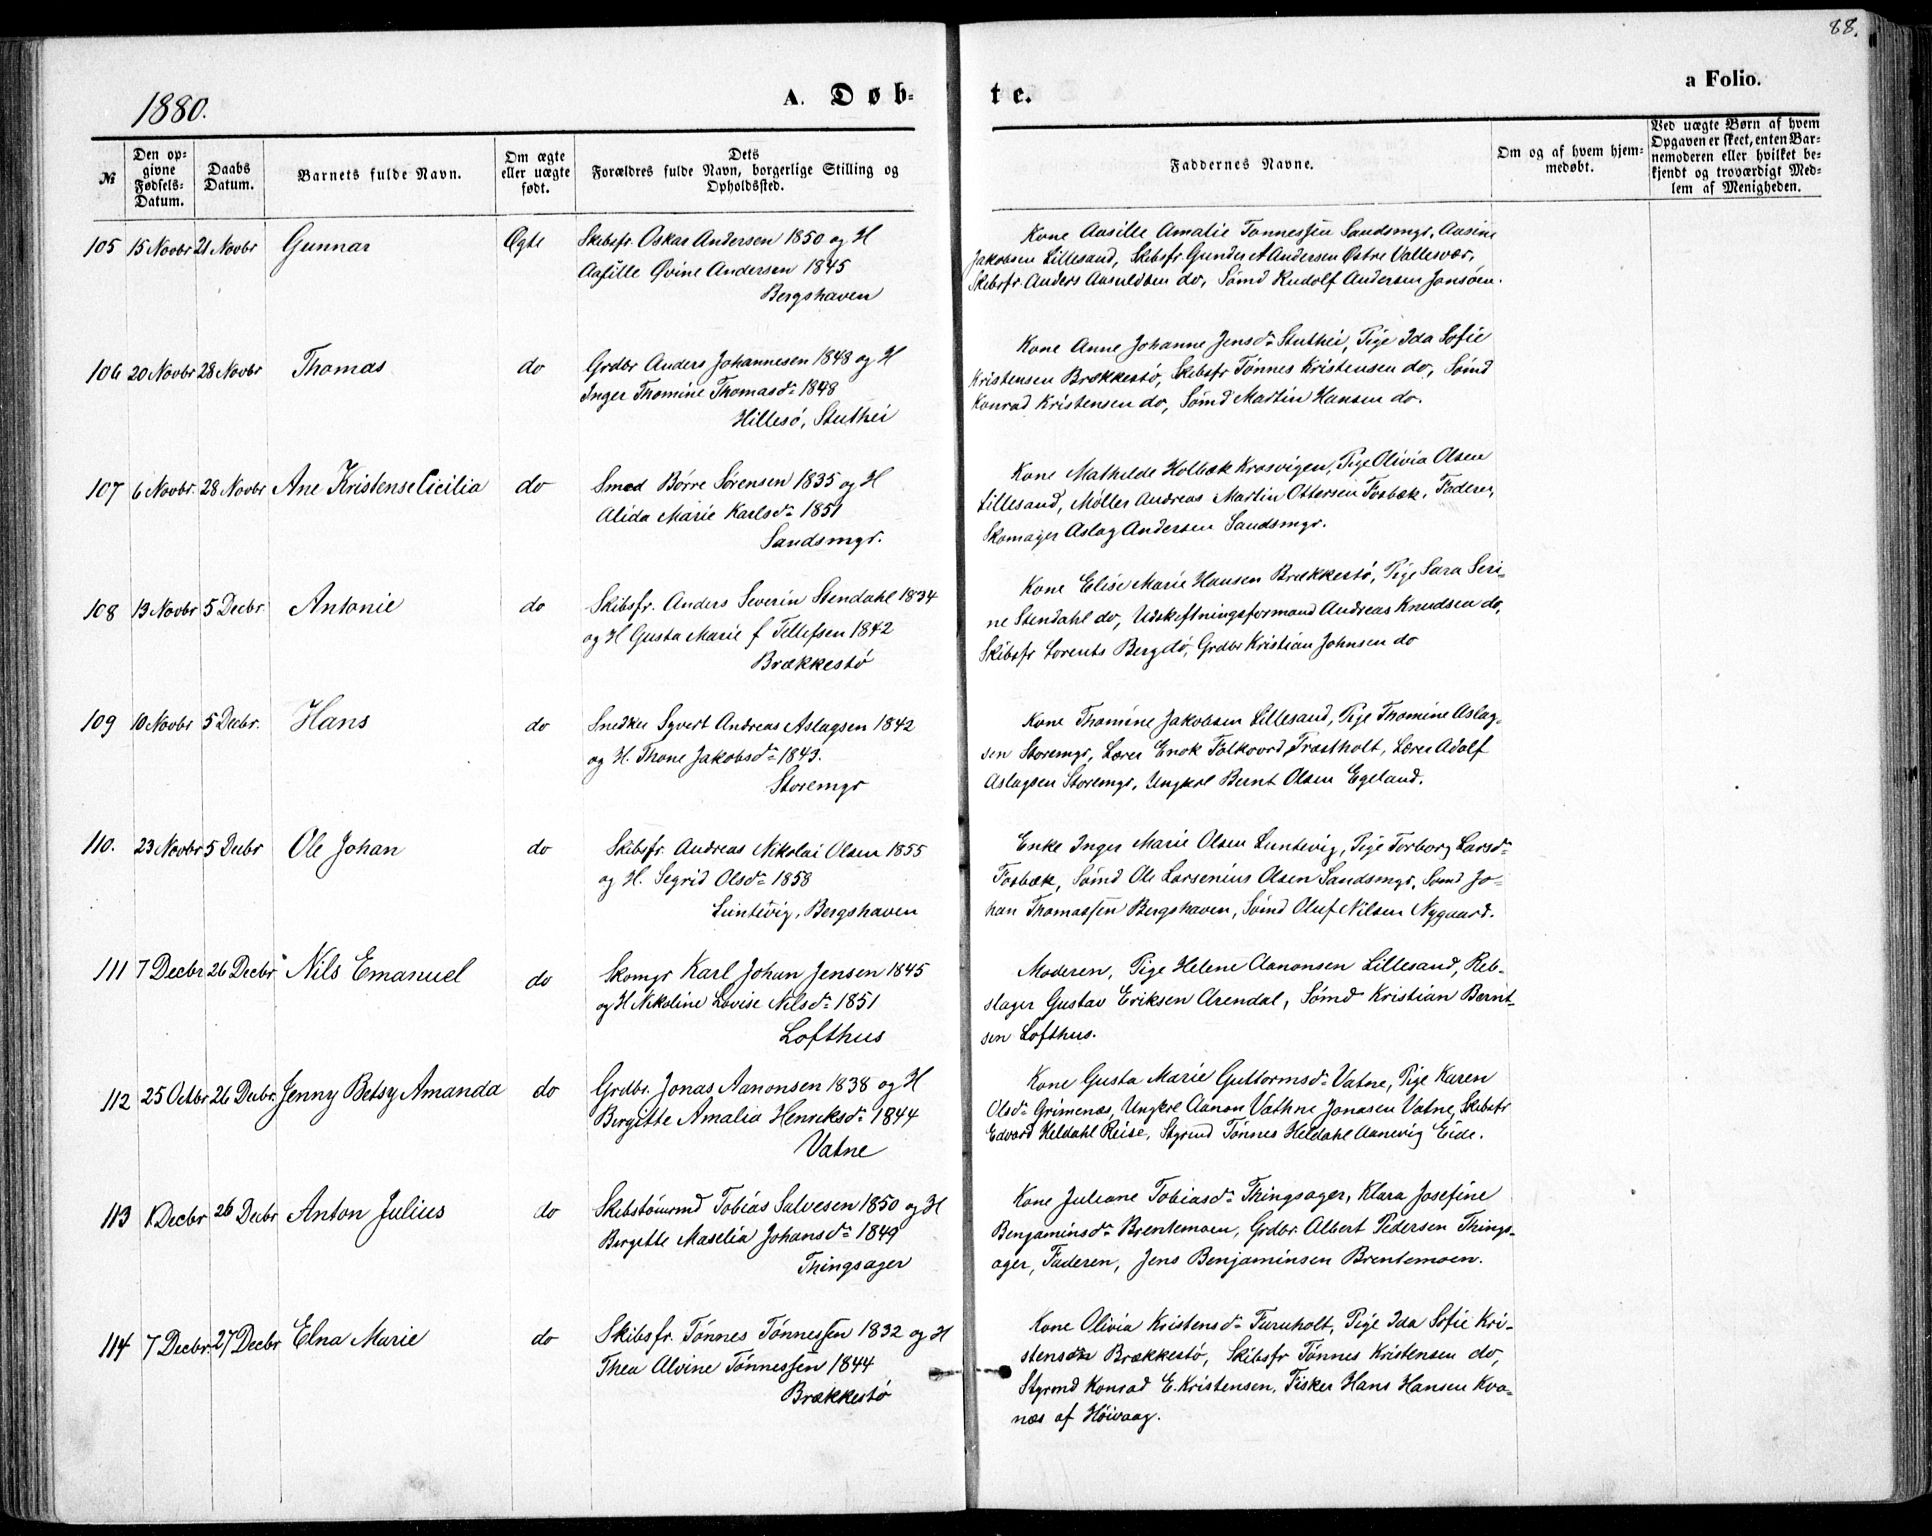 88.
1880.
A. Døb-
te.
a Folio.
№
Den op-
givne
Fødsels-
Datum.
Daabs
Datum.
Barnets fulde Navn.
Om ægte
eller uægte
født.
Dets
Forældres fulde Navn, borgerlige Stilling og
Opholdssted.
Faddernes Navne.
Om og af hvem hjem-
medøbt.
Ved uægte Børn af hvem
Opgaven er skeet, enten Bar-
nemoderen eller hvilket be-
kjendt og troværdigt Med-
lem af Menigheden.
105 15 Novbr 21 Novbr Gunnar Ægte
Skibsfr. Oskar Andersen 1850 og H
Aasille Øvine Andersen 1845
Bergshaven
Kone Aasille Amalie Tønnessen Sandsmyr, Ausine
Jakobsen Lillesand, Skibsfr. Gunder A Andersen Østre Vallesvær,
Skibsfr. Anders Aasuldsen do, Sømd Rudolf Andersen Jonsøen.
106 20 Novbr 28 Novbr Thomas do
Grdbr Anders Johannesen 1848 og H
Inger Thomine Thomasdr 1848
Hillesø, Stuthei
Kone Anne Johanne Jensdr Stuthei, Pige Ida Sofie
Kristensen Brækkestø, Skibsfr Tønnes Kristensen do, Sømd
Konrad Kristensen do, Sømd Martin Hansen do.
107 6 Novbr. 28 Novbr Ane Kristense Cicilia do
Smed Børre Sørensen 1835 og H
Alida Marie Karlsdr 1851
Sandsmyr.
Kone Mathilde Holbæk Krosvigen, Pige Olivia Olsen
Lillesand, Møller Andreas Martin Ottersen Fosbæk, Faderen,
Skomager Aslag Andersen Sandsmyr.
108 13 Novbr 5 Decbr. Antonie do
Skibsfr. Anders Severin Stendahl 1834
og H Gusta Marie f Tellefsen 1842
Brækkestø
Kone Elise Marie Hansen Brækkestø, Pige Sara Seri-
ne Stendahl do, Udskiftningsformand Andreas Knudsen do,
Skibsfr Lorents Bergstø, Grdbr Kristian Johnsen do
109 10 Novbr 5 Decbr. Hans do
Snedker Syvert Andreas Aslagsen 1842
og H. Thone Jakobsdr 1843.
Storemyr
Kone Thomine Jakobsen Lillesand, Pige Thomine Aslag-
sen Storemyr, Lærer Enok Folkvord, Trøstholt, Lærer Adolf
Aslagsen Storemyr, Ungkrl Bernt Olsen Egeland.
110. 23 Novbr 5 Decbr Ole Johan do
Skibsfr. Andreas Nikolai Olsen 1855
og H. Segrid Olsdr 1858
Luntevig, Bergshaven
Enke Inger Marie Olsen Luntevig, Pige Torborg Larsdr
Fosbæk, Sømd Ole Larsenius Olsen Sandsmyr, Sømd Jo-
han Thomassen Bergshaven, Sømd Oluf Nilsen Nygaard.
111 7 Decbr 26 Decbr Nils Emanuel do
Skomgr Karl Johan Jensen 1845
og H Nikoline Lovise Nilsdr 1851
Lofthus
Moderen, Pige Helene Aanonsen Lillesand, Reb-
slager Gustav Eriksen Arendal, Sømd Kristian Bernt-
sen Lofthus.
112 25 Octbr 26 Decbr. Jenny Betsy Amanda do
Grdbr. Jonas Aanonsen 1838 og H
Bergitte Amalia Henriksdr 1844
Vatne
Kone Gusta Marie Guttormsdr Vatne, Pige Karen
Olsdr Grimenæs, Ungkrl Aanon Vathne Jonasen Vatne, Skibsfr
Edvard Heldahl Reise, Styrmd Tønnes Heldahl Aanevig Eide.
113 1 Decbr 26 Decbr Anton Julius do
Skibstømmd Tobias Salvesen 1850 og H
Bergitte Maselia Johansdr 1849
Thingsager
Kone Juliane Tobiasdr Thingsager, Klara Josefine
Benjaminsdr Brentemoen, Grdbr. Albert Pedersen Things-
ager, Faderen, Jens Benjaminsen Brentemoen.
114 7 Decbr. 27 Decbr Elna Marie do
Skibsfr. Tønnes Tønnessen 1832 og H
Thea Alvine Tønnessen 1844
Brækkestø
Kone Olivia Kristensdr Furuholt, Pige Ida Sofie Kri-
stensdr Brækkestø, Skibsfr Tønnes Kristensen do,
Styrmd Konrad E. Kristensen, Fisker Hans Hansen Kva-
næs af Høivaag.